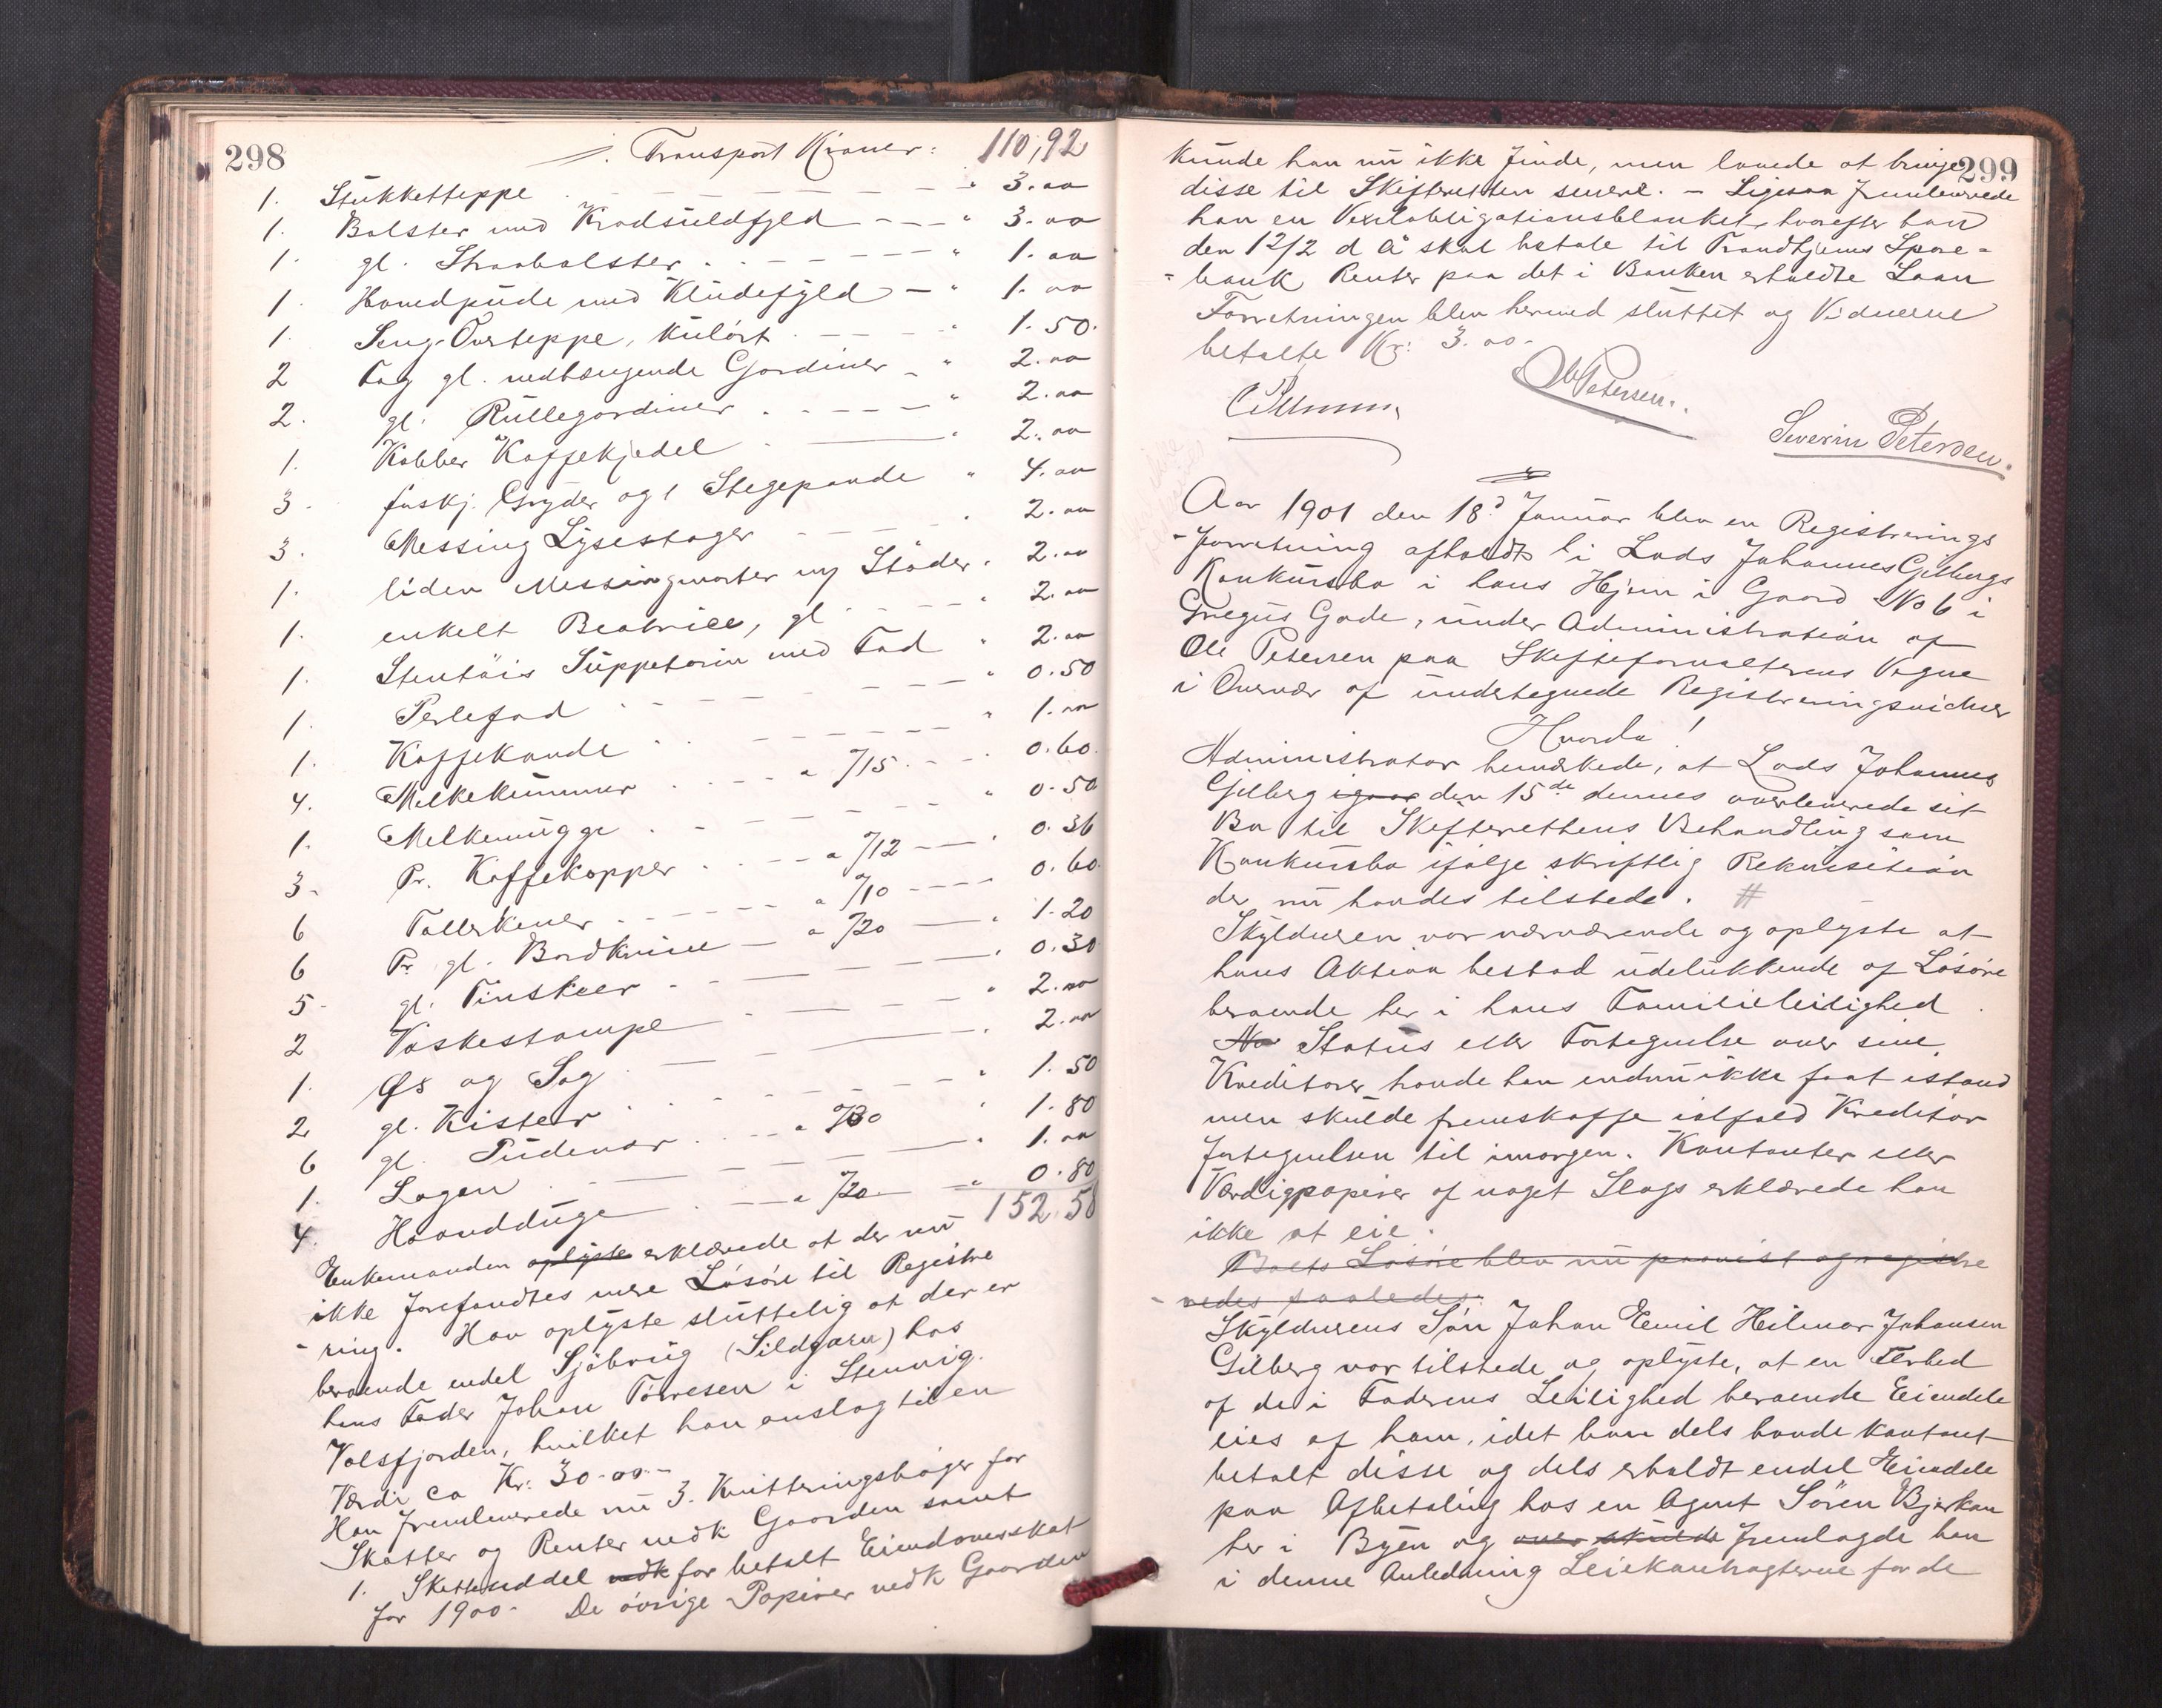 298
Transport Kroner: 110,92
1. Stükketteppe " 3.00
1. Bolster med Krøduldfyld " 3.00
1. gl. Straabolster " 1.00
1. Hovedpude med Kludefyld " 1.00
1. Seng Overteppe, kulört " 1.50
2 Fag gl. nedhængende Gardiner " 2.00
2. gl. Rullegardiner " 2.00
1. Kobber Kaffekjedel " 2.00
3 forskj. Gryder og 1 Stegepande " 4.00
3. Messing Lysestager " 2.00
1. liden Messingmorter og Stöder " 2.00
1. enkelt Beatrice, gl " 2.00
1. Stentöis Suppeterin med Fad " 2.00
1. Perlefad " 0.50
1. Kaffekande " 1.00
4. Melkekummer a /15 " 0.60
1. Melkemugge " 0.50
3 Pr. Kaffekopper a /12 " 0.36
6 Tallerkener a /10 0.60
6 Pr gl. Bordknive a /20 " 1.20
5 gl. Tinskeer " 0.30
2 Vaskestampe " 2.00
1. Øs og Sag " 2.00
2 gl. Kister " 1.50
6 gl. Pudevar a /30 " 1.80
1. Lagen " 1.00
4. Haandduge a /20 " 0.80
152.58
Enkemanden oplyste erklærede at der nu
ikke forefandtes mere Lösöre til Registre
-ring. Han oplyste sluttelig at der er
beroende endel Sjöbrug (Sildgarn) hos
hans Fader Johan Törresen i Stennvig
Valsfjorden, hvilket han anslog til en
Værdi ca Kr: 30.00-
Han fremleverede nu 3. Kvitteringsböger for
Skatter og Renter vedk Gaarden samt
1. Skatteseddel vedk for betalt Eiendomsskat
for 1900. De övrige Papirer vedk Gaarden
299
kunde han nu ikke finde, men lovede at bringe
disse til Skifteretten senere. - Ligesaa fremleverede
han en Vexelobligationsblanket, hvorefter han
den 12/2 d Å skal betale til Trondhjems Spare=
=bank Renter paa det i Banken erholdte Laan
Forretningen blev hermed sluttet og Vidnerne
betalte Kr: 3.00-
Ole Petersen.
Severin Petersen.
Aar 1901 den 18d Januar blev en Registrerings
-forretning afholdt i Lods Johannes Gilbergs
Konkursbo i hans Hjem i Gaard No 6 i
Gregus Gade, under Administration af
Ole Petersen paa Skifteforvalterens Vegne
i Overvær af undertegnede Registreringsvidner
Hvorda!
Administrator bemærkede, at Lods Johannes
Gilberg igaar den 15de dennes overleverede sit
Bo til Skifterettens Behandling som
Konkursbo ifölge skriftlig Rekvisition
der nu havdes tilstede. #
Skyldneren var nærværende og oplyste at
hans Aktiva bestod udelukkende af Lösöre
beroende her i hans Familieleilighed
No Status eller Fortegnelse over sine
Kreditorer havde han endnu ikke faat istand
men skulde fremskaffe ialfald Kreditor
fortegnelsen til imorgen. Kontanter eller
Værdigpapirer af noget Slags erklærede han
ikke at eie.
Boets Lösöre blev nu paavist og registre
-redes saaledes:
Skyldnerens Sön Johan Emil Hilmar Johansen
Gilberg var tilstede og oplyste, at en Flerhed
af de i Faderens Leilighed beroende Eiendele
eies af ham, idet han dels havde kontant
betalt disse og dels erholdt endel Eiendele
paa Afbetaling hos en Agent Sören Bjerkan
her i Byen og skulde fremlagde han
i denne Anledning Leiekontragterne for de